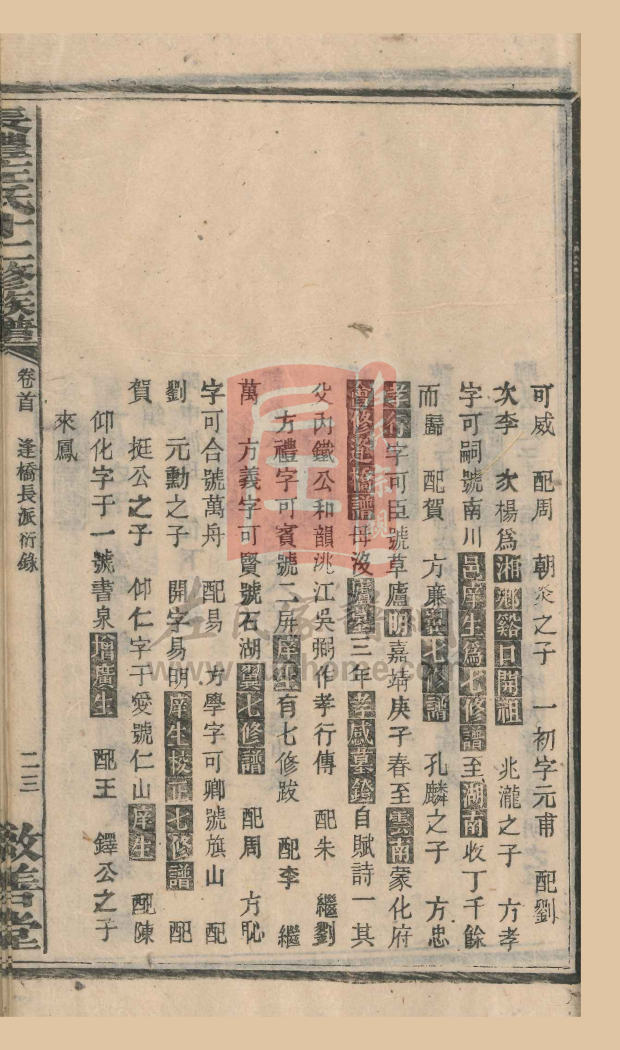 可威 配周 朝炎之子 一初字元甫 配劉
次李 次楊爲湘鄉谿口開祖 兆瀧之子 方孝
字可嗣號南川邑庠生爲七修譜至湖南收丁千餘
而歸 配賀 方廉翼七修譜 孔麟之子 方忠
孝行字可臣號草廬明嘉靖庚子春至雲南蒙化府
會修逢橋譜母沒廬墓三年孝感墓鐙自賦詩一其
父丙鐵公和韻洮江吳弼作孝行傳 配朱 繼劉
方禮字可賓號二屏庠生有七修跋 配李 繼
萬 方義字可賢號石湖翼七修譜 配周 方恥
字可合號萬舟 配易 方學字可卿號旗山 配
劉 元勳之子 開字易明庠生校正七修譜 配
賀 挺公之子 仰仁字于愛號仁山庠生 配陳
仰化字于一號書泉增廣生 配王 鐸公之子
來鳳
長澧左氏十二修族譜 卷首 逢橋長派衍錄 二三 敘倫堂
左氏宗親網
www.zuojhome.com